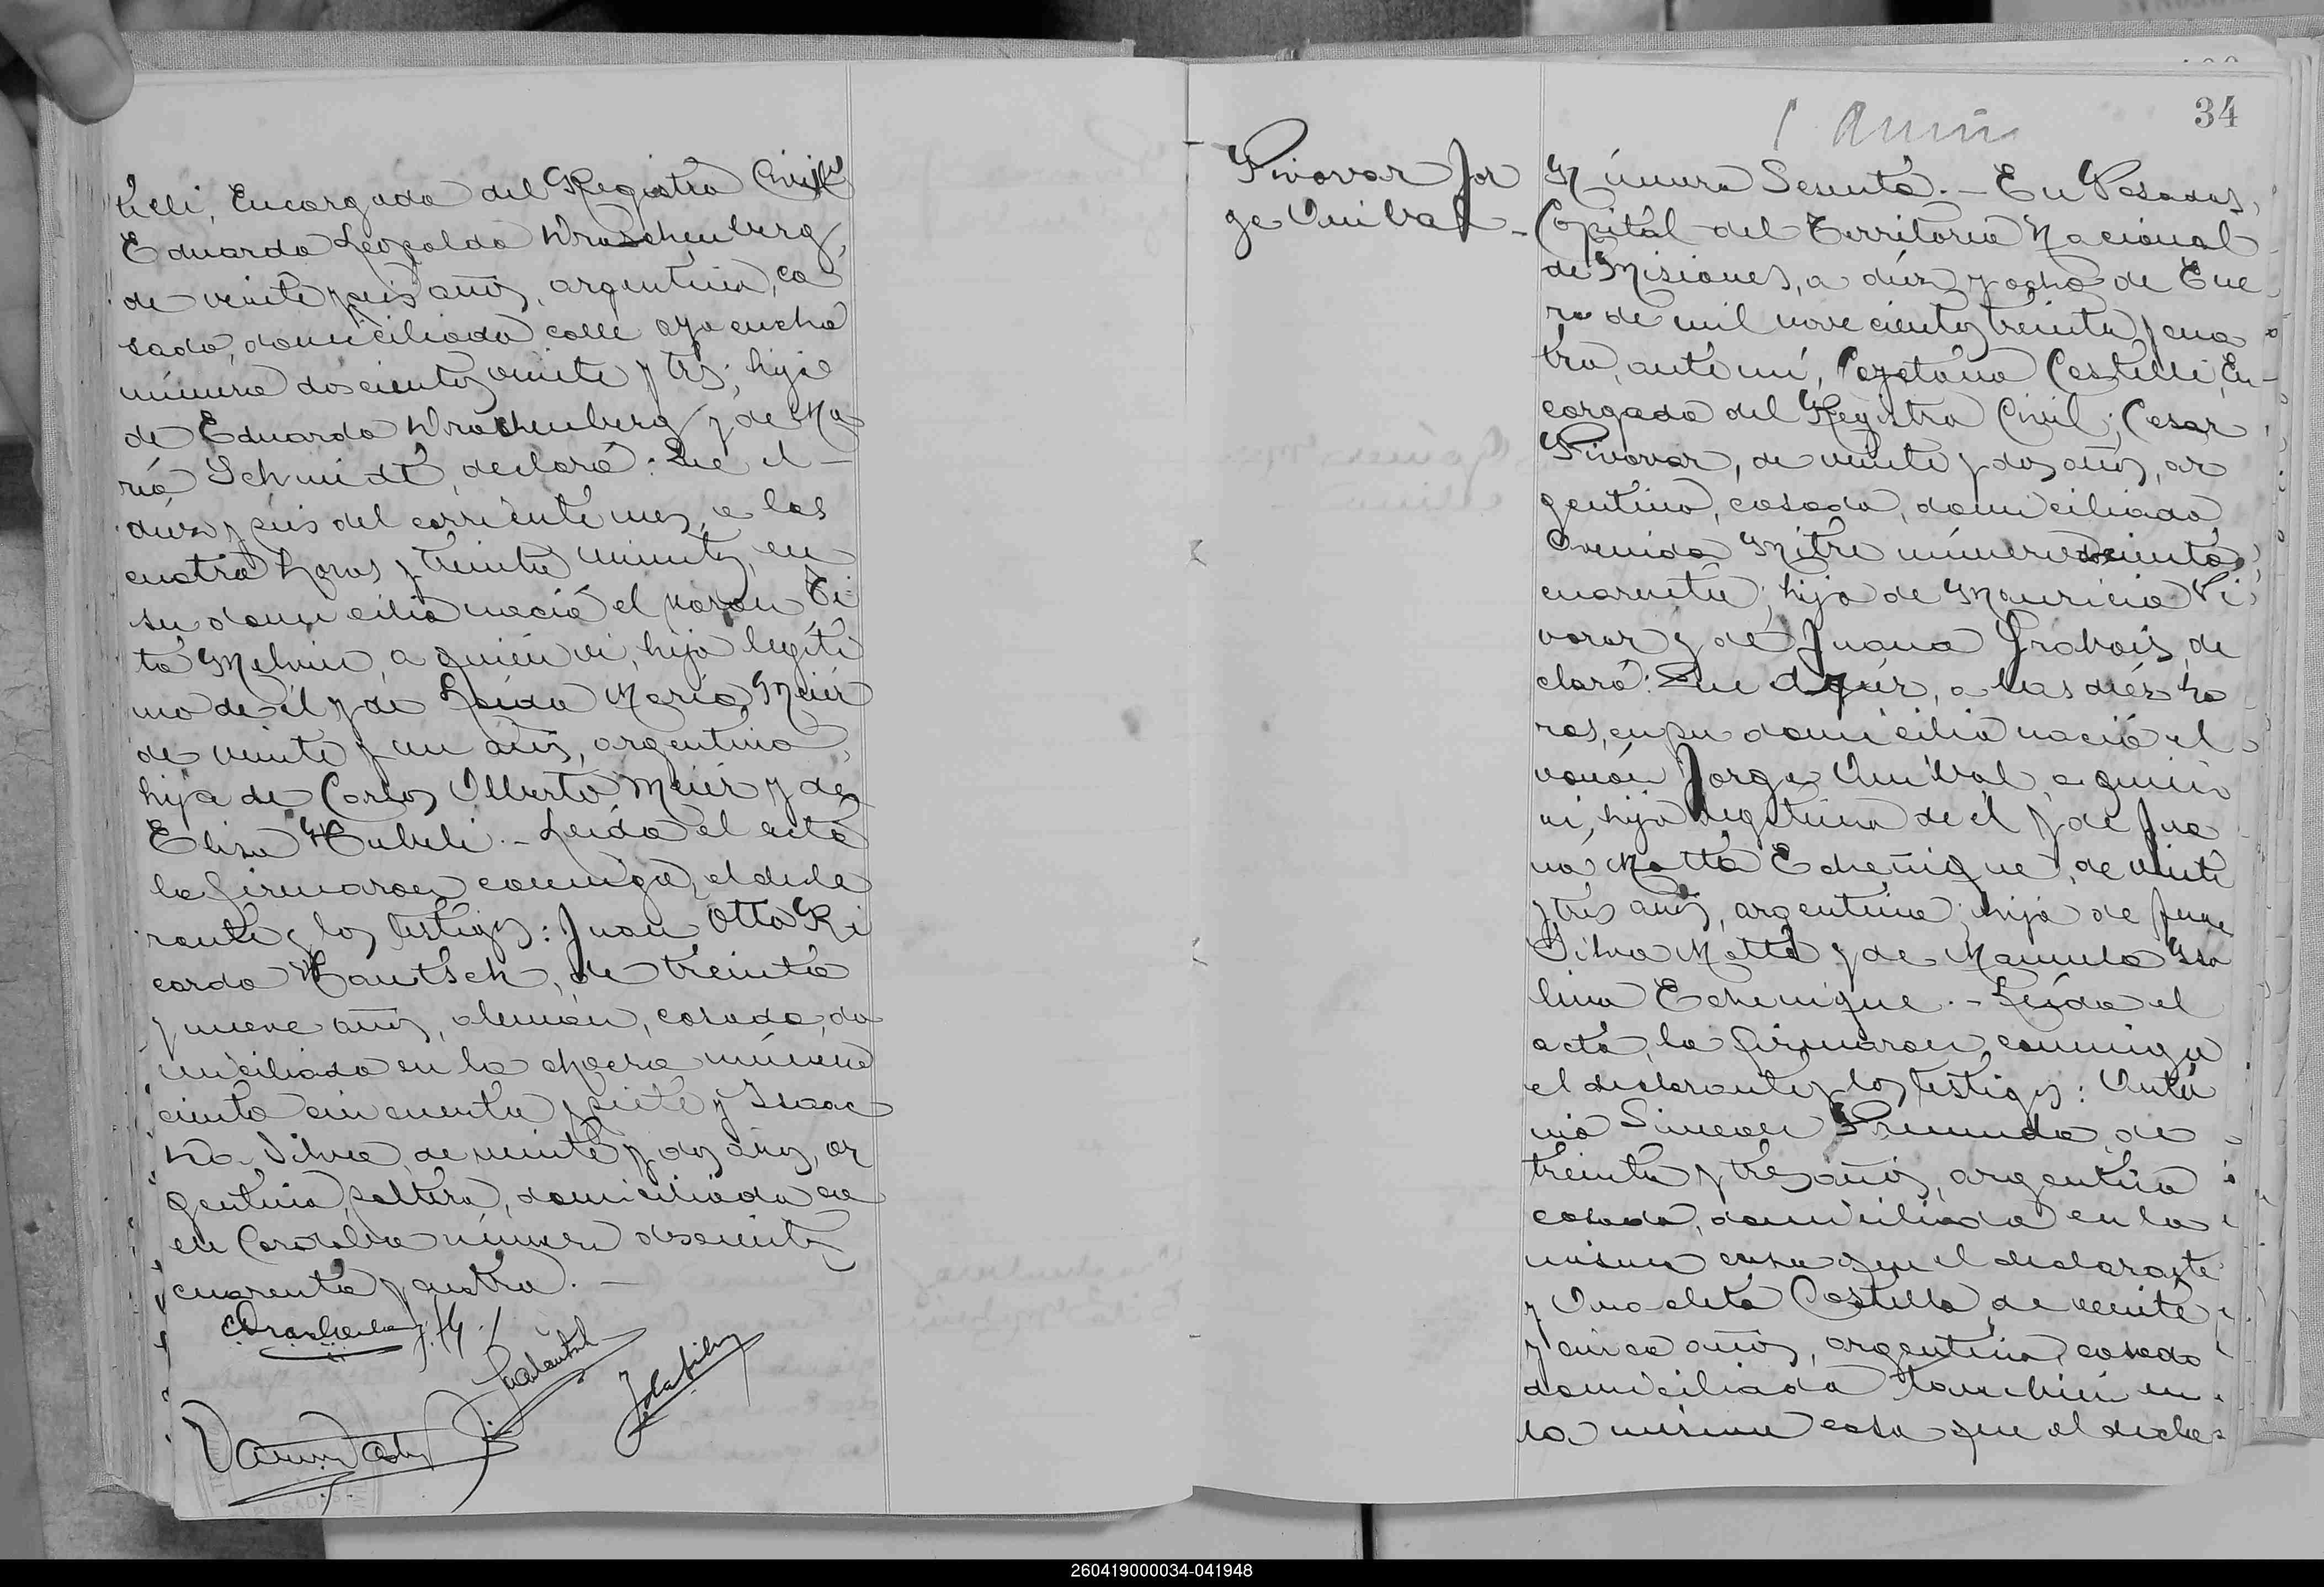 telli, Encargado del Registro Civil,
Eduardo Leopoldo Draschenberg,
de veinte y seis años, argentino, ca
sado, domiciliado calle Ayacucho
número doscientos veinte y tres; hijo
de Eduardo Drachenberg y de Ma
ría Schmidt, declaró: Que el
diez y seis del corriente mes, a las
cuatro horas y treinta minutos, en
su domicilio nació el varon Ti
to Melvin, a quién vi, hijo legíti
mo de él y de María Meier
de veinte y un años, argentina,
hija de Carlos Alberto Meier y de
Elisa Hubeli.- Leída el acta
la firmaron conmigo, el decla
rante y los testigos: Juan Otto Ri
cardo Hautsch, de treinta
y nueve años, alemán, casado, do
miciliado en la chacra número
ciento cincuenta y siete y Isaac
Da Silva, de veinte y dos años, ar
gentino, soltero, domiciliado ca
en Cordoba número doscientos
cuarenta y cuatro.-
34
Pivovar Jor
ge Anibal.-
Número Sesenta.- En Posadas,
Capital del Territorio Nacional
de Misiones, a diez y ocho de Ene
ro de mil novecientos treinta y cua
tro, ante mí, Cayetano Castelli, En
cargado del Registro Civil; Cesar
Pivovar, de veinte y dos años, ar
gentino, casado, domiciliado
Avenida Mitre número
cuarenta; hijo de Mauricio Pi
vovar y de Juana Grabois, de
claró: Que Ayer, a las diez ho
ras, en su domicilio nació el
varón Jorge Anibal, a quien
vi, hijo legítimo de él y de Jua
na Matta Echenique, de veinte
y tres años, argentina; hija de
Silva Matta y de Manuela
lina Echenique.- Leída el
acta, la firmaron conmigo
el declarante y los testigos: Anto
nio Simeon de
treinta y tres años, argentino
casado, domiciliado en la
misma casa que el declarante
y Anacleto Castillo, de veinte
y cinco años, argentino, casado
domiciliado tambien en
la misma casa que el decla-
260419000034-041948